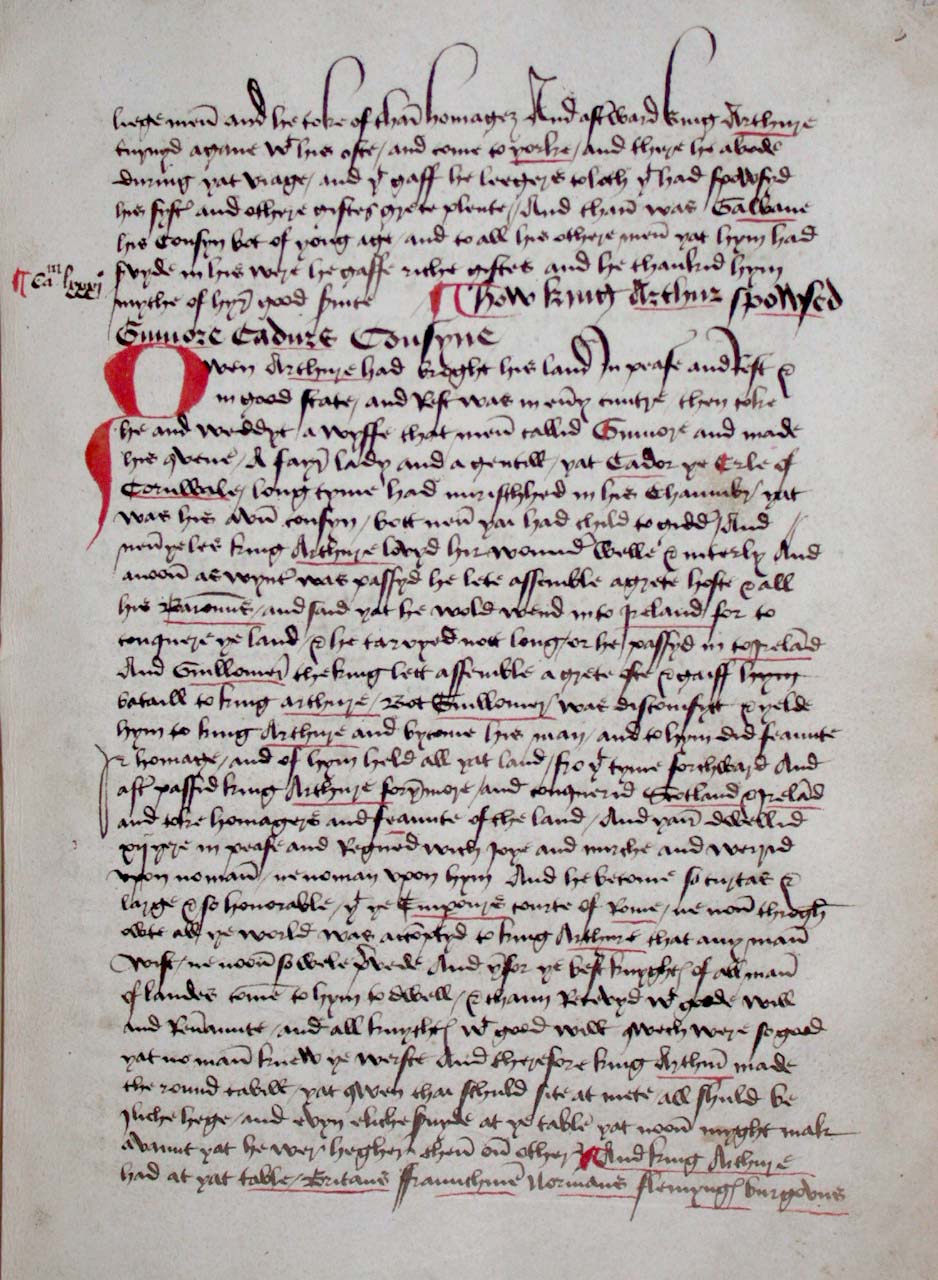 liege men̄ and he toke of tham̄ homagez And aftˀward king Arthure
turnyd agane wt his oste / and come to yorke / and there he abode
during yat viage / and yr gaff he leegers to loth yt had spowsyd
his systˀ and othere giftes grete plente / And than̄ was Galwane
his Consyn bot of yong age / and to all his othere men̄ yat hym had
seruyde in his were he gaffe riche giftes and he thankid hym
Cam lxxxj
mythe of hyr good seruice ¶ How king Arthur spowsed
Gunnore Cadurs Consyne
Qwen Arthure had broght his land In pease and Rest &
in good state / and Rest was in euery cuntre then toke
he and weddyt a wyffe that men̄ callid Gunnore and made
his qvene / A fayr lady and a gentill / yat Cador ye Erle of
Cornwale / long tyme had nurisshhed in his Chaumbr yat
was his awn̄ consyn / bott neuer yai had child to gidder / And
neuer ye les king Arthure lovyd hir wounder welle & interly And
anoon̄ as wynter was passyd he lete assemble a grete hoste & all
his Baronns / and said yat he wold wend in to Ireland for to
conquere ye land / & he taryyed nott long / or he passyd in to Irelād
And Guillomer the king lett assemble a grete oste & gaiff hym
bataill to king arthure / Bot Guillomer was discomfytt & yelde
hym to king Arthure and bycome his man / and to hym did feaunte
& homage / and of hym held all yat land / fro yt tyme forthward And
aftˀ passid king Arthure foryrmore / and conquerid Scotland & Irelād
and toke homagers and feaunte of the land / And yan̄ dwellid
xij yere in pease and Regned with Joye and mirthe and werrid
vpon no man̄ / ne no man vpon hym And he become so curtas &
large & so honorable / yt ye Emporirs courte of Rome / ne non̄ throgh
owte all ye world was accōptyd to king Arthure that any man̄
wist / ne noon̄ so wele And yrfor ye best knyghtꝭ of all manˀ
of landes come to hym to dwell / & tham̄ Resevyd wt goode will
and / and all knyghtꝭ wt good will qwech were so good
yat no man̄ knew ye werste And therefore king Arthur made
the round tabill / yat qwen thai schuld site at mete all shuld be
Iliche hege / and evyn eliche at ye table yat noon̄ myght mak
avaunt yat he wer hegher then̄ on̄ other ¶ And king Arthure
had at yat table / Britans ffraunchmē Normans flemyngꝭ burgoyns